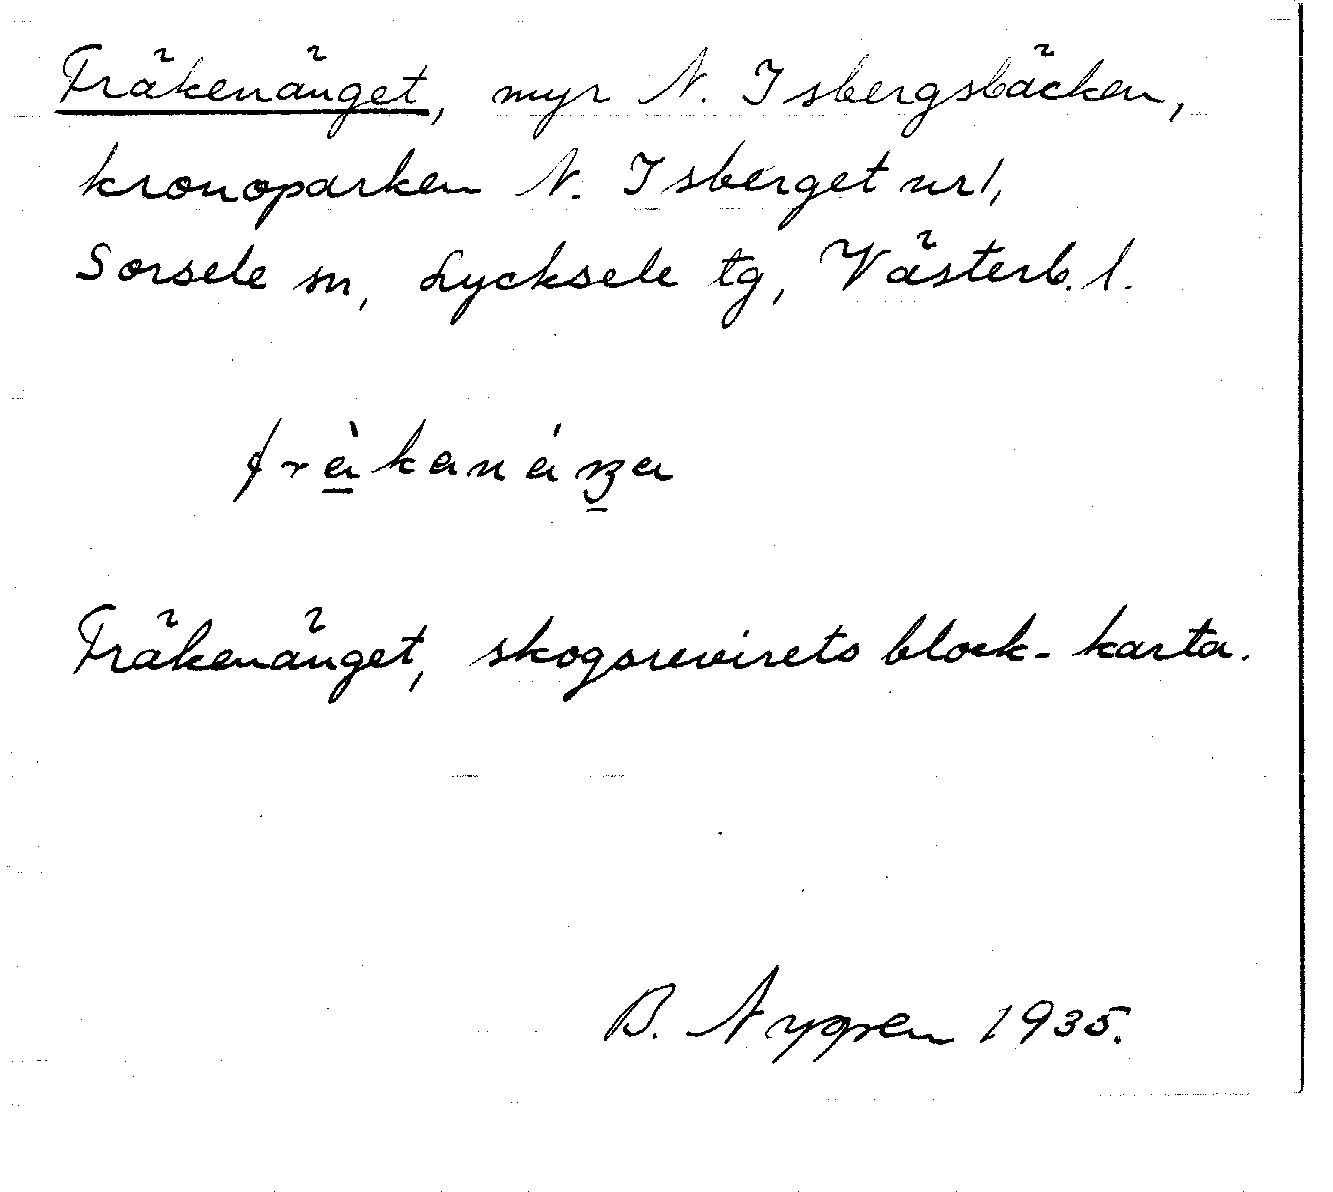 Fräkenänget, myr N. Isbergsbäcken,
kronoparken N. Isberget nr 1,
Sorsele sn, Lycksele tg, Västerb. l.
Fräkenänget, skogsrevirets block-karta.
B. Nygren 1935.